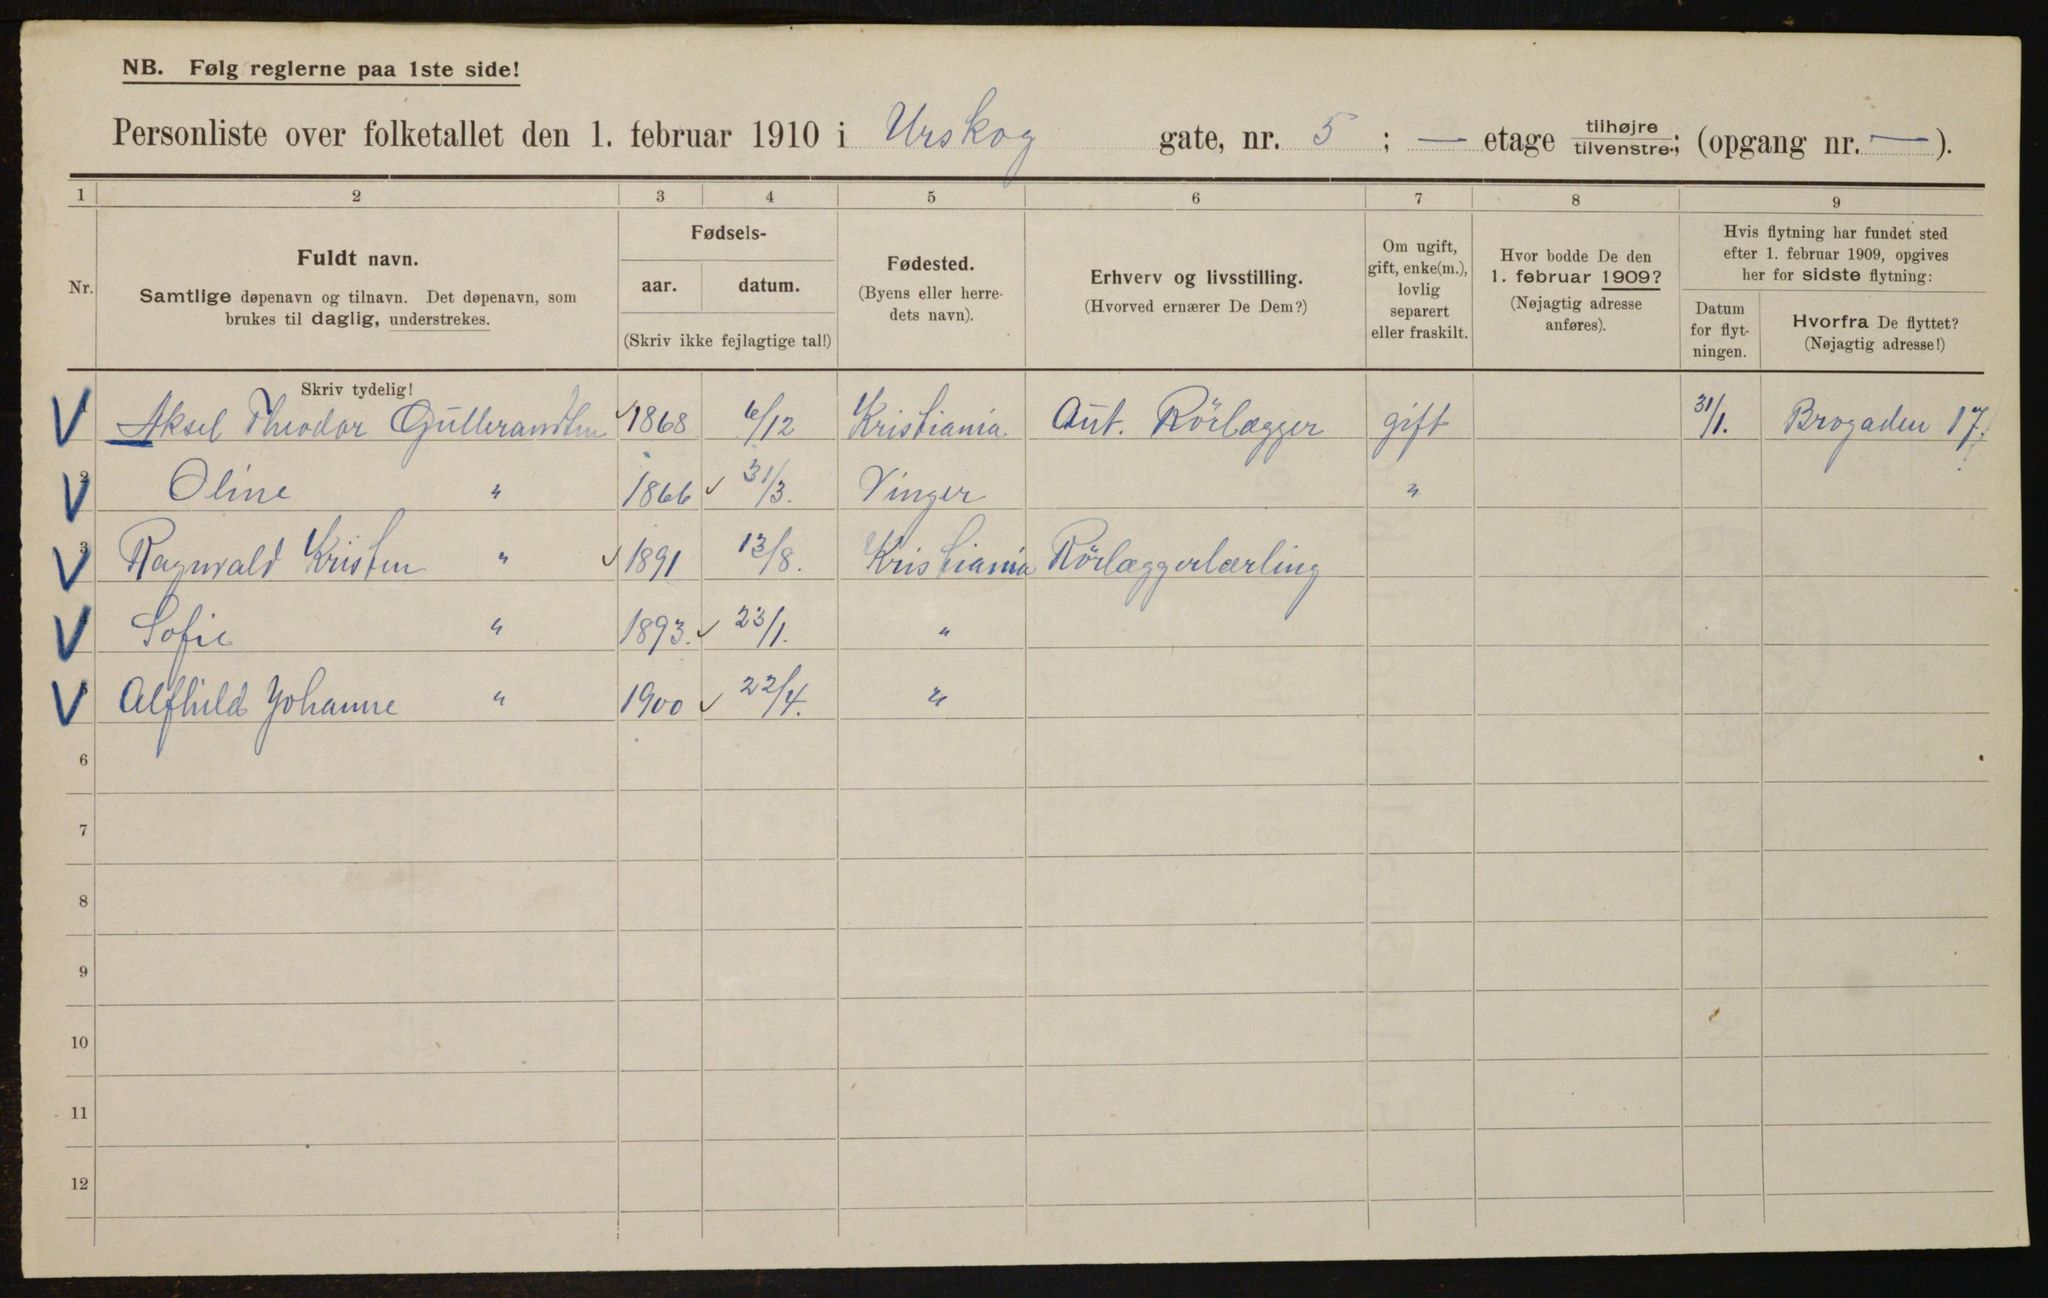 NB. Følg reglerne paa 1ste side!
Personliste over folketallet den 1. februar 1910 i Urskog gate, nr. 5 ; — etage tilhøjre tilvenstre; (opgang nr. — ).
1 2 3 4 5 6 7 8 9
Nr.
Fuldt navn.
Samtlige døpenavn og tilnavn. Det døpenavn, som
brukes til daglig, understrekes.
Fødsels-
aar. datum.
(Skriv ikke fejlagtige tal!)
Fødested.
(Byens eller herre-
dets navn).
Erhverv og livsstilling.
(Hvorved ernærer De Dem?)
Om ugift,
gift, enke(m.),
lovlig
separert
eller fraskilt.
Hvor bodde De den
1. februar 1909?
(Nøjagtig adresse
anføres).
Hvis flytning har fundet sted
efter 1. februar 1909, opgives
her for sidste flytning:
Datum
for flyt-
ningen.
Hvorfra De flyttet?
(Nøjagtig adresse!)
Skriv tydelig!
Aksel Theodor Gulbrandsen 1868 6/12 Kristiania Aut. Rörlægger gift 31/1. Brogaden 17.
2 Oline " 1866 31/3. Vinger "
3 Ragnvald Kristen " 1891 13/8. Kristiania Rörlæggerlærling
Sofie " 1893. 23/1. "
Alfhild Johanne " 1900 22/4. "
6
7
8
9
10
11
12